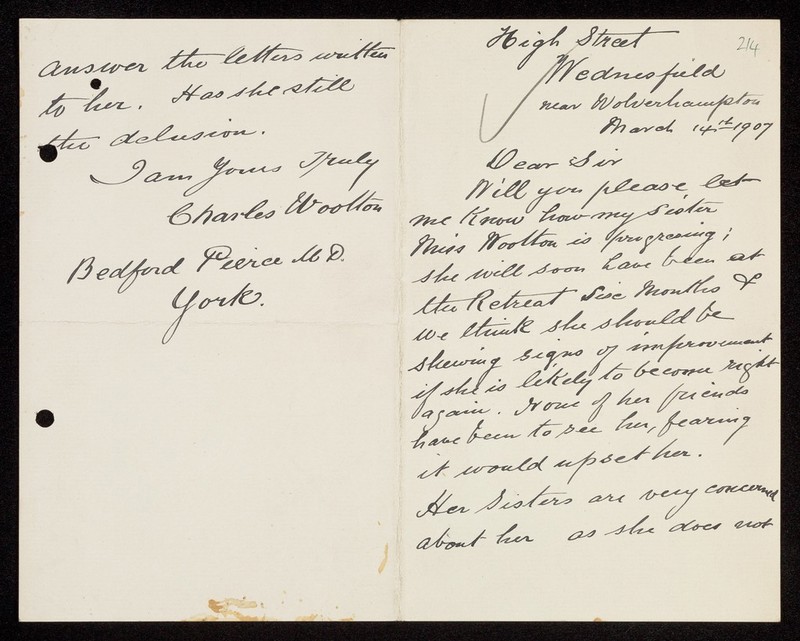 214
High Street
Wednesfield
near Wolverhampton
March 14th 1907
Dear Sir
Will you please let
me know how my Sister
Miss Wootton is progressing;
she will soon have been at
the Retreat Six Months &
we think she should be
shewing signs of improvement
if she is likely to become right
again. None of her friends
have been to see her, fearing
it would upset her.
Her Sisters are very concerned
about her as she does not
answer the letters written
to her. Has she still
the delusion.
I am Yours Truly
Charles Wootton
Bedford Pierce M.D.
York.